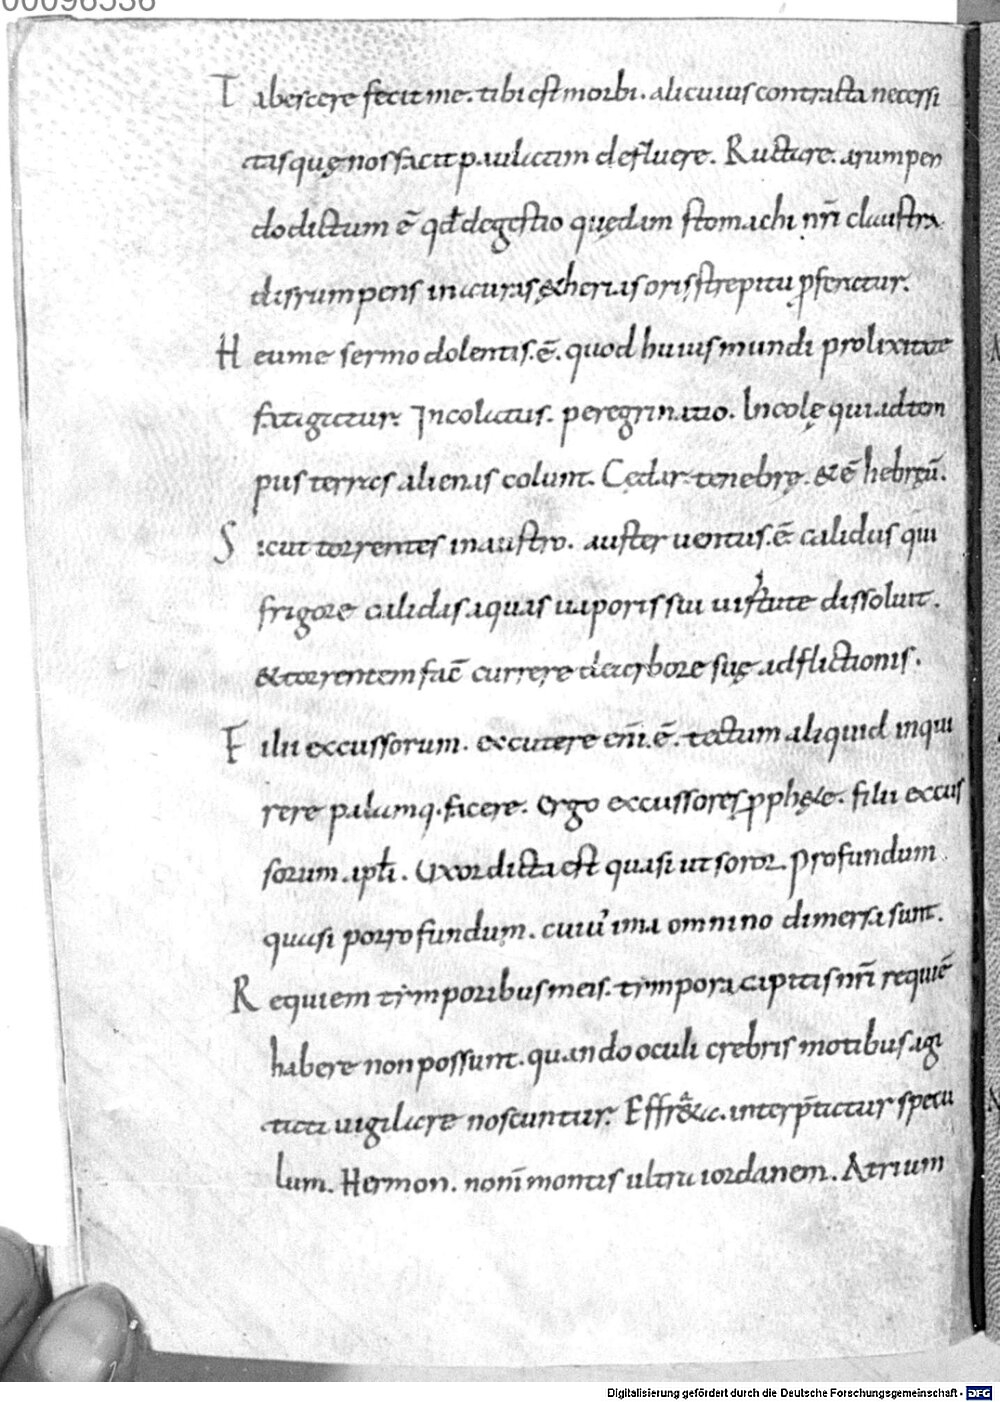 00096536
Tabescere fecit me. tibi est morbi. alicuius contracta necessi
tas quę nos facit paulatim defluere. Ructare. arumpen
do dictum ē qđ degestio quędam stomachi nr̄i claustra
disrumpens in auras & herias oris strepitu ꝓferatur.
Heu me sermo dolentis. ē. quod huius mundi prolixitate
fatigatur. Incolatus. peregrinatio. Incolę qui ad tem
pus terras alienas colunt. Cędar tenebrę. & ē hebręū.
Sicut torrentes in austro. auster uentus. ē calidus qui
frigore calidas aquas uaporis sui uirtute dissoluit.
& torrentem fac̄ currere de acerbore suę adflictionis.
Filii excussorum. excutere eni̅. ē. tectum aliquid inqui
rere palamq. facere. ergo excussores ꝓphę&e. filii excus
sorum. aptł̄i. Uxor dicta est quasi ut soror. Profundum
quasi porro fundum. cuiu᾽ ima omnino dimersa sunt.
Requiem tẏmporibus meis. tẏmpora capitis nr̄i requiē
habere non possunt. quando oculi crebris motibus agi
tati uigilare noscuntur. Effr&a. interp̄tatur specu
lum. Hermon. nom̄ montis ultra iordanem. Atrium
Digitalisierung gefördert durch die Deutsche Forschungsgemeinschaft - DFG